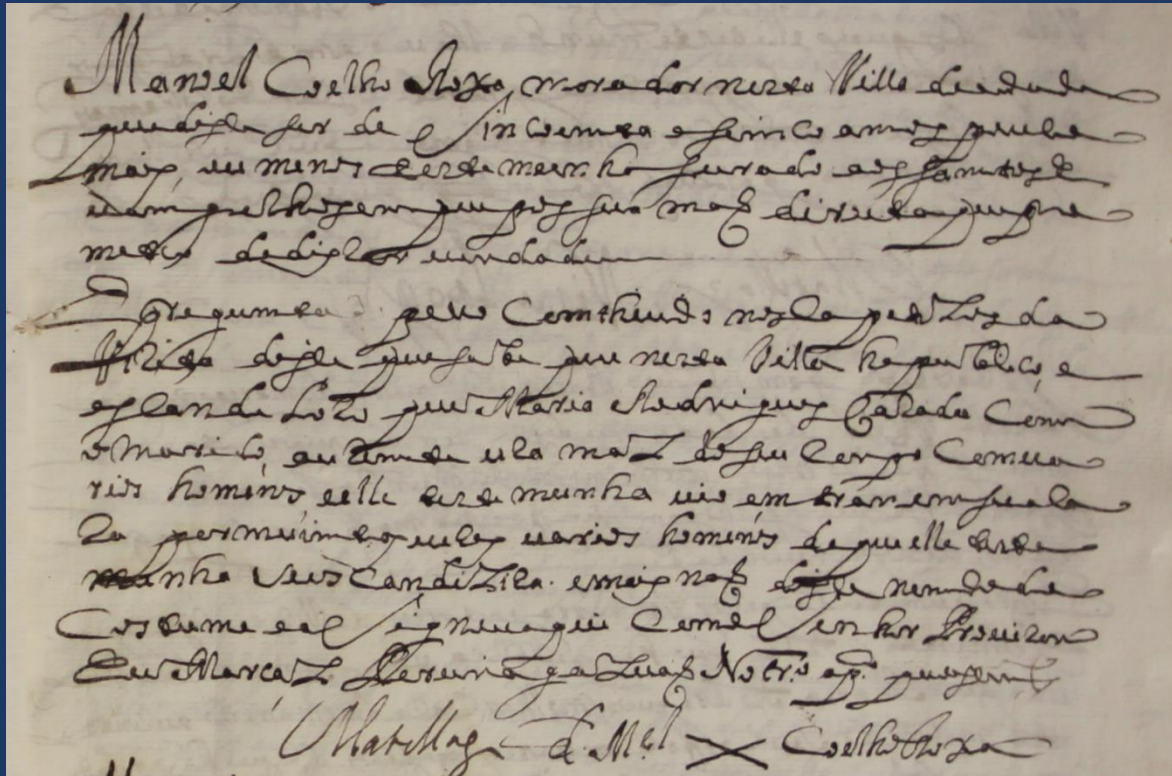 Manoel Coelho Roxo, morador nesta Villa de idade
que disse ser de Sincoenta e sinco annos pouco
mais, ou menos testemunha jurado aos santos E
vangelhos em que pos sua maõ direita que pro
meteo de dizer verdade
E preguntado pello Comtheudo nesta petizaõ da
disse que sabe que nesta Villa he publico, e
escandalozo que Maria Rodrigues Cazada Com
o Marido, auzente uza mal de seu Corpo Com va
rios homens, e elle testemunha vio emtrar em sua ca
za por muitas vezes varios homens de que elle teste
munha Seus Candiziza. e mais naõ disse nem do de
Costume e al Signou aqui Com o Senhor Provizor
Eu Marcal Notr.o ap.o que escrevi
de M.el X Coelho Roxo